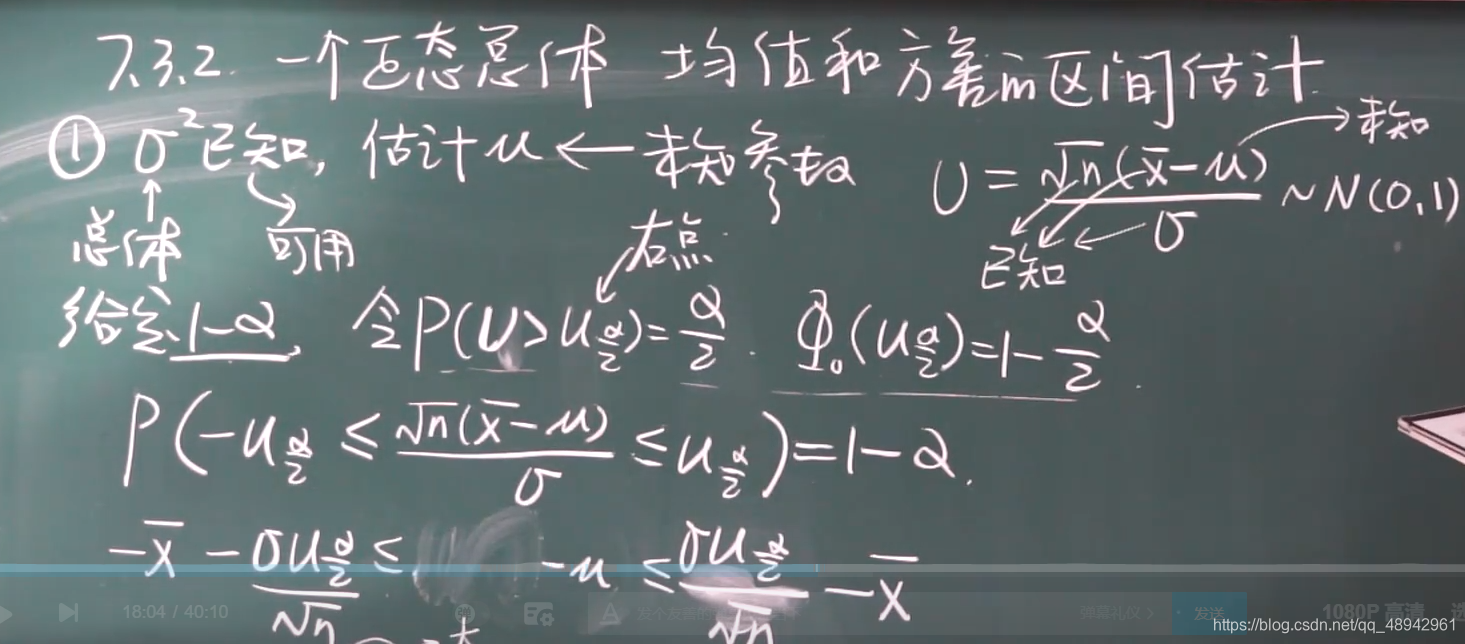 7.3.2. 一个正态总体 均值和方差的区间估计
① σ²已知, 估计μ ← 未知参数
总体 可用
U = √n(x̄-μ)/σ ~ N(0,1)
未知
已知
右点
给定 1-α 令P(U>u_{α/2})=α/2. Φ₀(u_{α/2})=1-α/2.
P(-u_{α/2} ≤ √n(x̄-μ)/σ ≤ u_{α/2})=1-α.
-x̄ - σu_{α/2}/√n ≤ -μ ≤ σu_{α/2}/√n - x̄
18:04 / 40:10
弹幕礼仪 >
发送
1080P 高清
选
https://blog.csdn.net/qq_48942961